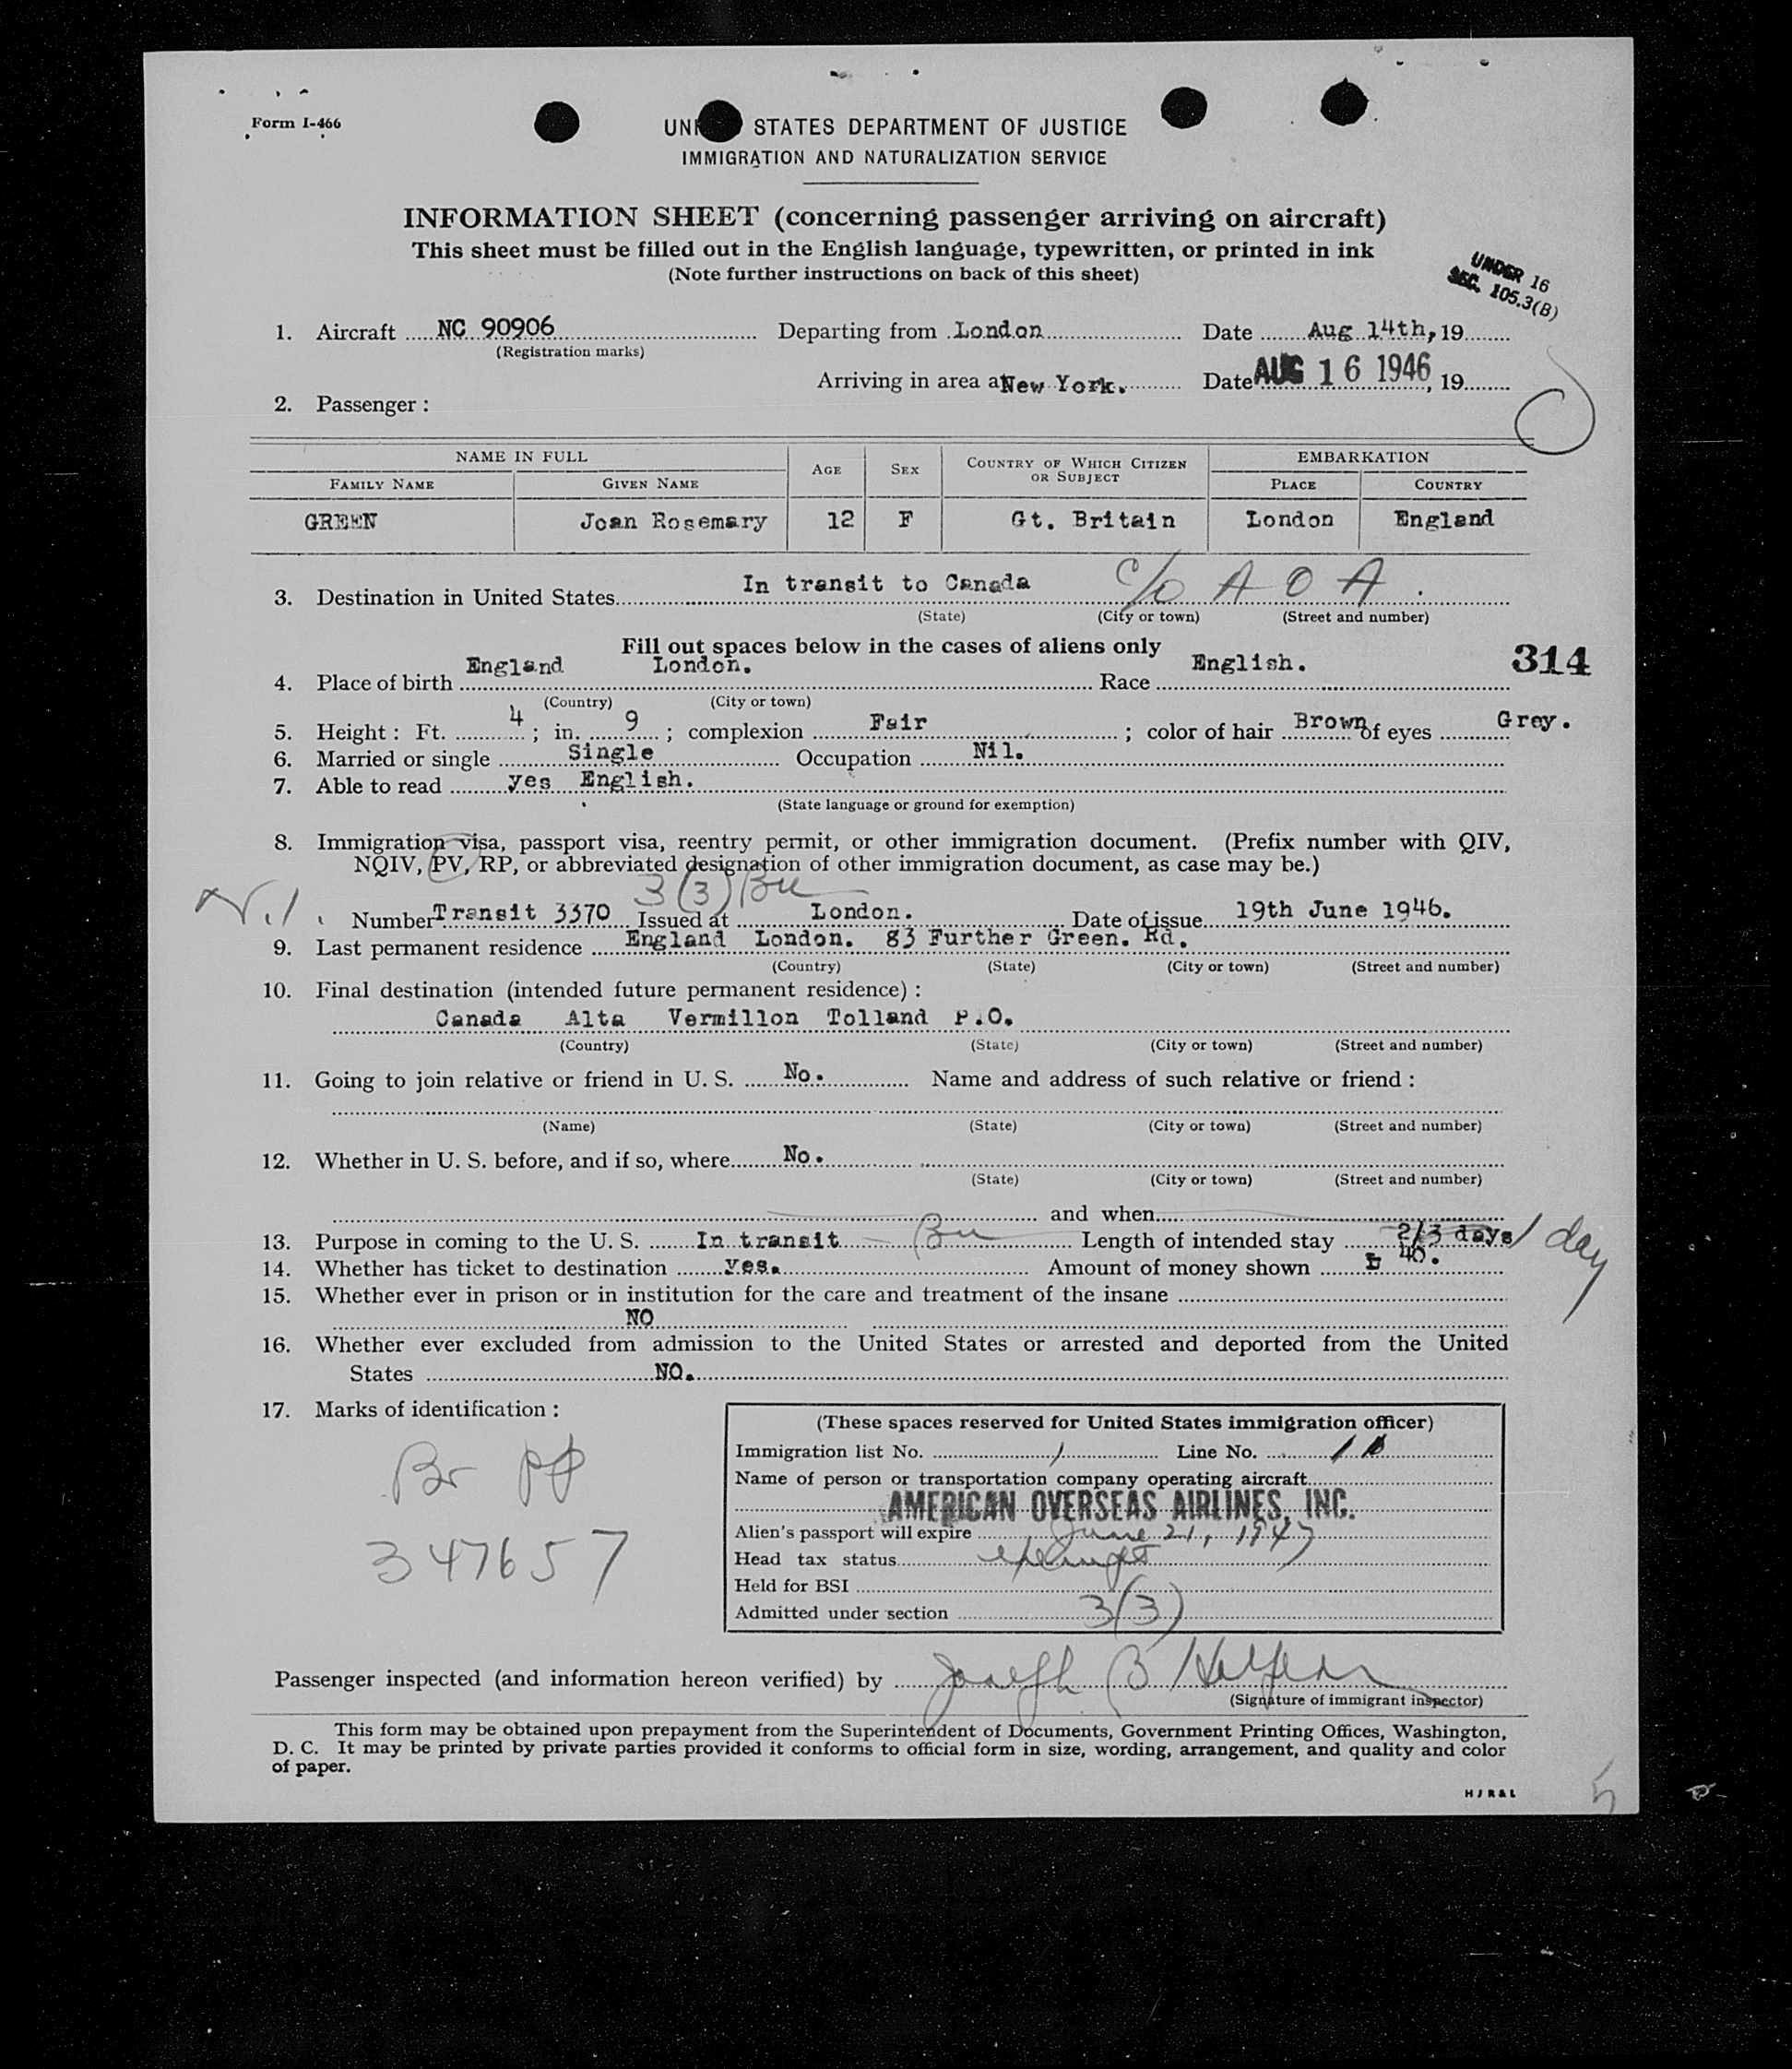 Form I-466
UNI STATES DEPARTMENT OF JUSTICE
IMMIGRATION AND NATURALIZATION SERVICE
INFORMATION SHEET (concerning passenger arriving on aircraft)
This sheet must be filled out in the English language, typewritten, or printed in ink
(Note further instructions on back of this sheet)
UNDER 16
SEC. 105.3(B)
1. Aircraft NC 90906 Departing from London Date Aug 14th, 19
(Registration marks)
Arriving in area a New York. Date AUG 16 1946, 19
2. Passenger:
NAME IN FULL AGE SEX COUNTRY OF WHICH CITIZEN OR SUBJECT EMBARKATION
FAMILY NAME GIVEN NAME PLACE COUNTRY
GREEN Joan Rosemary 12 F Gt. Britain London England
3. Destination in United States In transit to Canada c/o A O A.
(State) (City or town) (Street and number)
Fill out spaces below in the cases of aliens only
314
4. Place of birth England London. Race English.
(Country) (City or town)
5. Height: Ft. 4; in. 9; complexion Fair; color of hair Brown of eyes Grey.
6. Married or single Single Occupation Nil.
7. Able to read yes English.
(State language or ground for exemption)
8. Immigration visa, passport visa, reentry permit, or other immigration document. (Prefix number with QIV,
NQIV, PV, RP, or abbreviated designation of other immigration document, as case may be.)
3(3)
Number Transit 3370 Issued at London. Date of issue 19th June 1946.
9. Last permanent residence England London. 83 Further Green. Rd.
(Country) (State) (City or town) (Street and number)
10. Final destination (intended future permanent residence):
Canada Alta Vermillon Tolland P.O.
(Country) (State) (City or town) (Street and number)
11. Going to join relative or friend in U. S. No. Name and address of such relative or friend:
(Name) (State) (City or town) (Street and number)
12. Whether in U. S. before, and if so, where No.
(State) (City or town) (Street and number)
and when
13. Purpose in coming to the U. S. In transit Length of intended stay 2/3 days 1 day
14. Whether has ticket to destination yes. Amount of money shown £ 40.
15. Whether ever in prison or in institution for the care and treatment of the insane
NO
16. Whether ever excluded from admission to the United States or arrested and deported from the United
States NO.
17. Marks of identification:
Br PP
347657
(These spaces reserved for United States immigration officer)
Immigration list No. 1 Line No. 1
Name of person or transportation company operating aircraft
AMERICAN OVERSEAS AIRLINES, INC.
Alien's passport will expire June 21, 1947
Head tax status exempt
Held for BSI
Admitted under section 3(3)
Passenger inspected (and information hereon verified) by Joseph B Halpern
(Signature of immigrant inspector)
This form may be obtained upon prepayment from the Superintendent of Documents, Government Printing Offices, Washington,
D. C. It may be printed by private parties provided it conforms to official form in size, wording, arrangement, and quality and color
of paper.
H J R & L
5